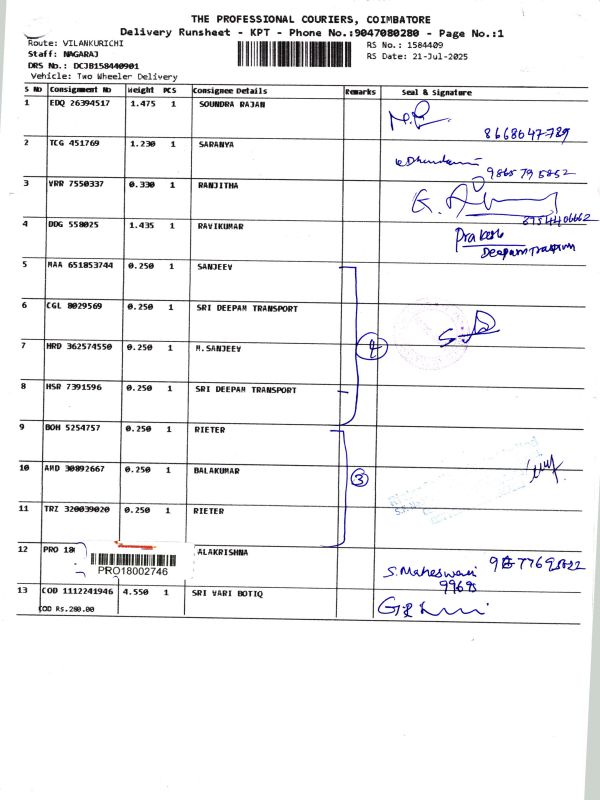 THE PROFESSIONAL COURIERS, COIMBATORE
Delivery Runsheet - KPT - Phone No.:9047080280 - Page No.:1
Route: VILANKURICHI
Staff: NAGARAJ
DRS No.: DCJB158440901
Vehicle: Two Wheeler Delivery
RS No.: 1584409
RS Date: 21-Jul-2025
S No Consignment No Weight PCS Consignee Details Remarks Seal & Signature
1 EDQ 26394517 1.475 1 SOUNDRA RAJAN
8668647789
2 TCG 451769 1.230 1 SARANYA
3 VRR 7550337 0.330 1 RANJITHA
4 DDG 558025 1.435 1 RAVIKUMAR
Prakash
Deepam Transport
5 MAA 651853744 0.250 1 SANJEEV
6 CGL 8029569 0.250 1 SRI DEEPAM TRANSPORT
4
7 HRD 362574550 0.250 1 M.SANJEEV
8 HSR 7391596 0.250 1 SRI DEEPAM TRANSPORT
9 BOM 5254757 0.250 1 RIETER
10 AMD 30892667 0.250 1 BALAKUMAR
3
11 TRZ 320039020 0.250 1 RIETER
12 PRO 180 ALAKRISHNA
PRO18002746
S. Maheswari
99695
13 COD 1112241946 4.550 1 SRI VARI BOTIQ
COD Rs.280.00